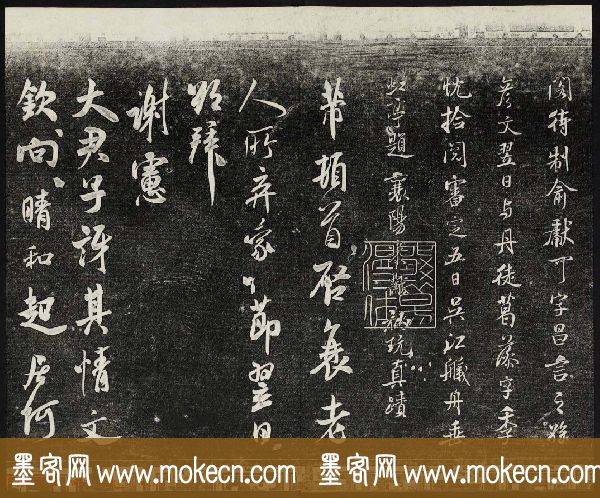 閤待制俞獻可字昌言之孫
彦文翌日與丹徒葛藻字季
忱拾閲審定五日吳江艤丹垂
虹亭題 襄陽 秘玩真蹟
芾頓首啓衰老
人所弃蒙 節翌日
拜
謝憲
大君子訝其情文
欽向、晴和起居何
墨客网 www.mokecn.com 墨客网 www.mokecn.com